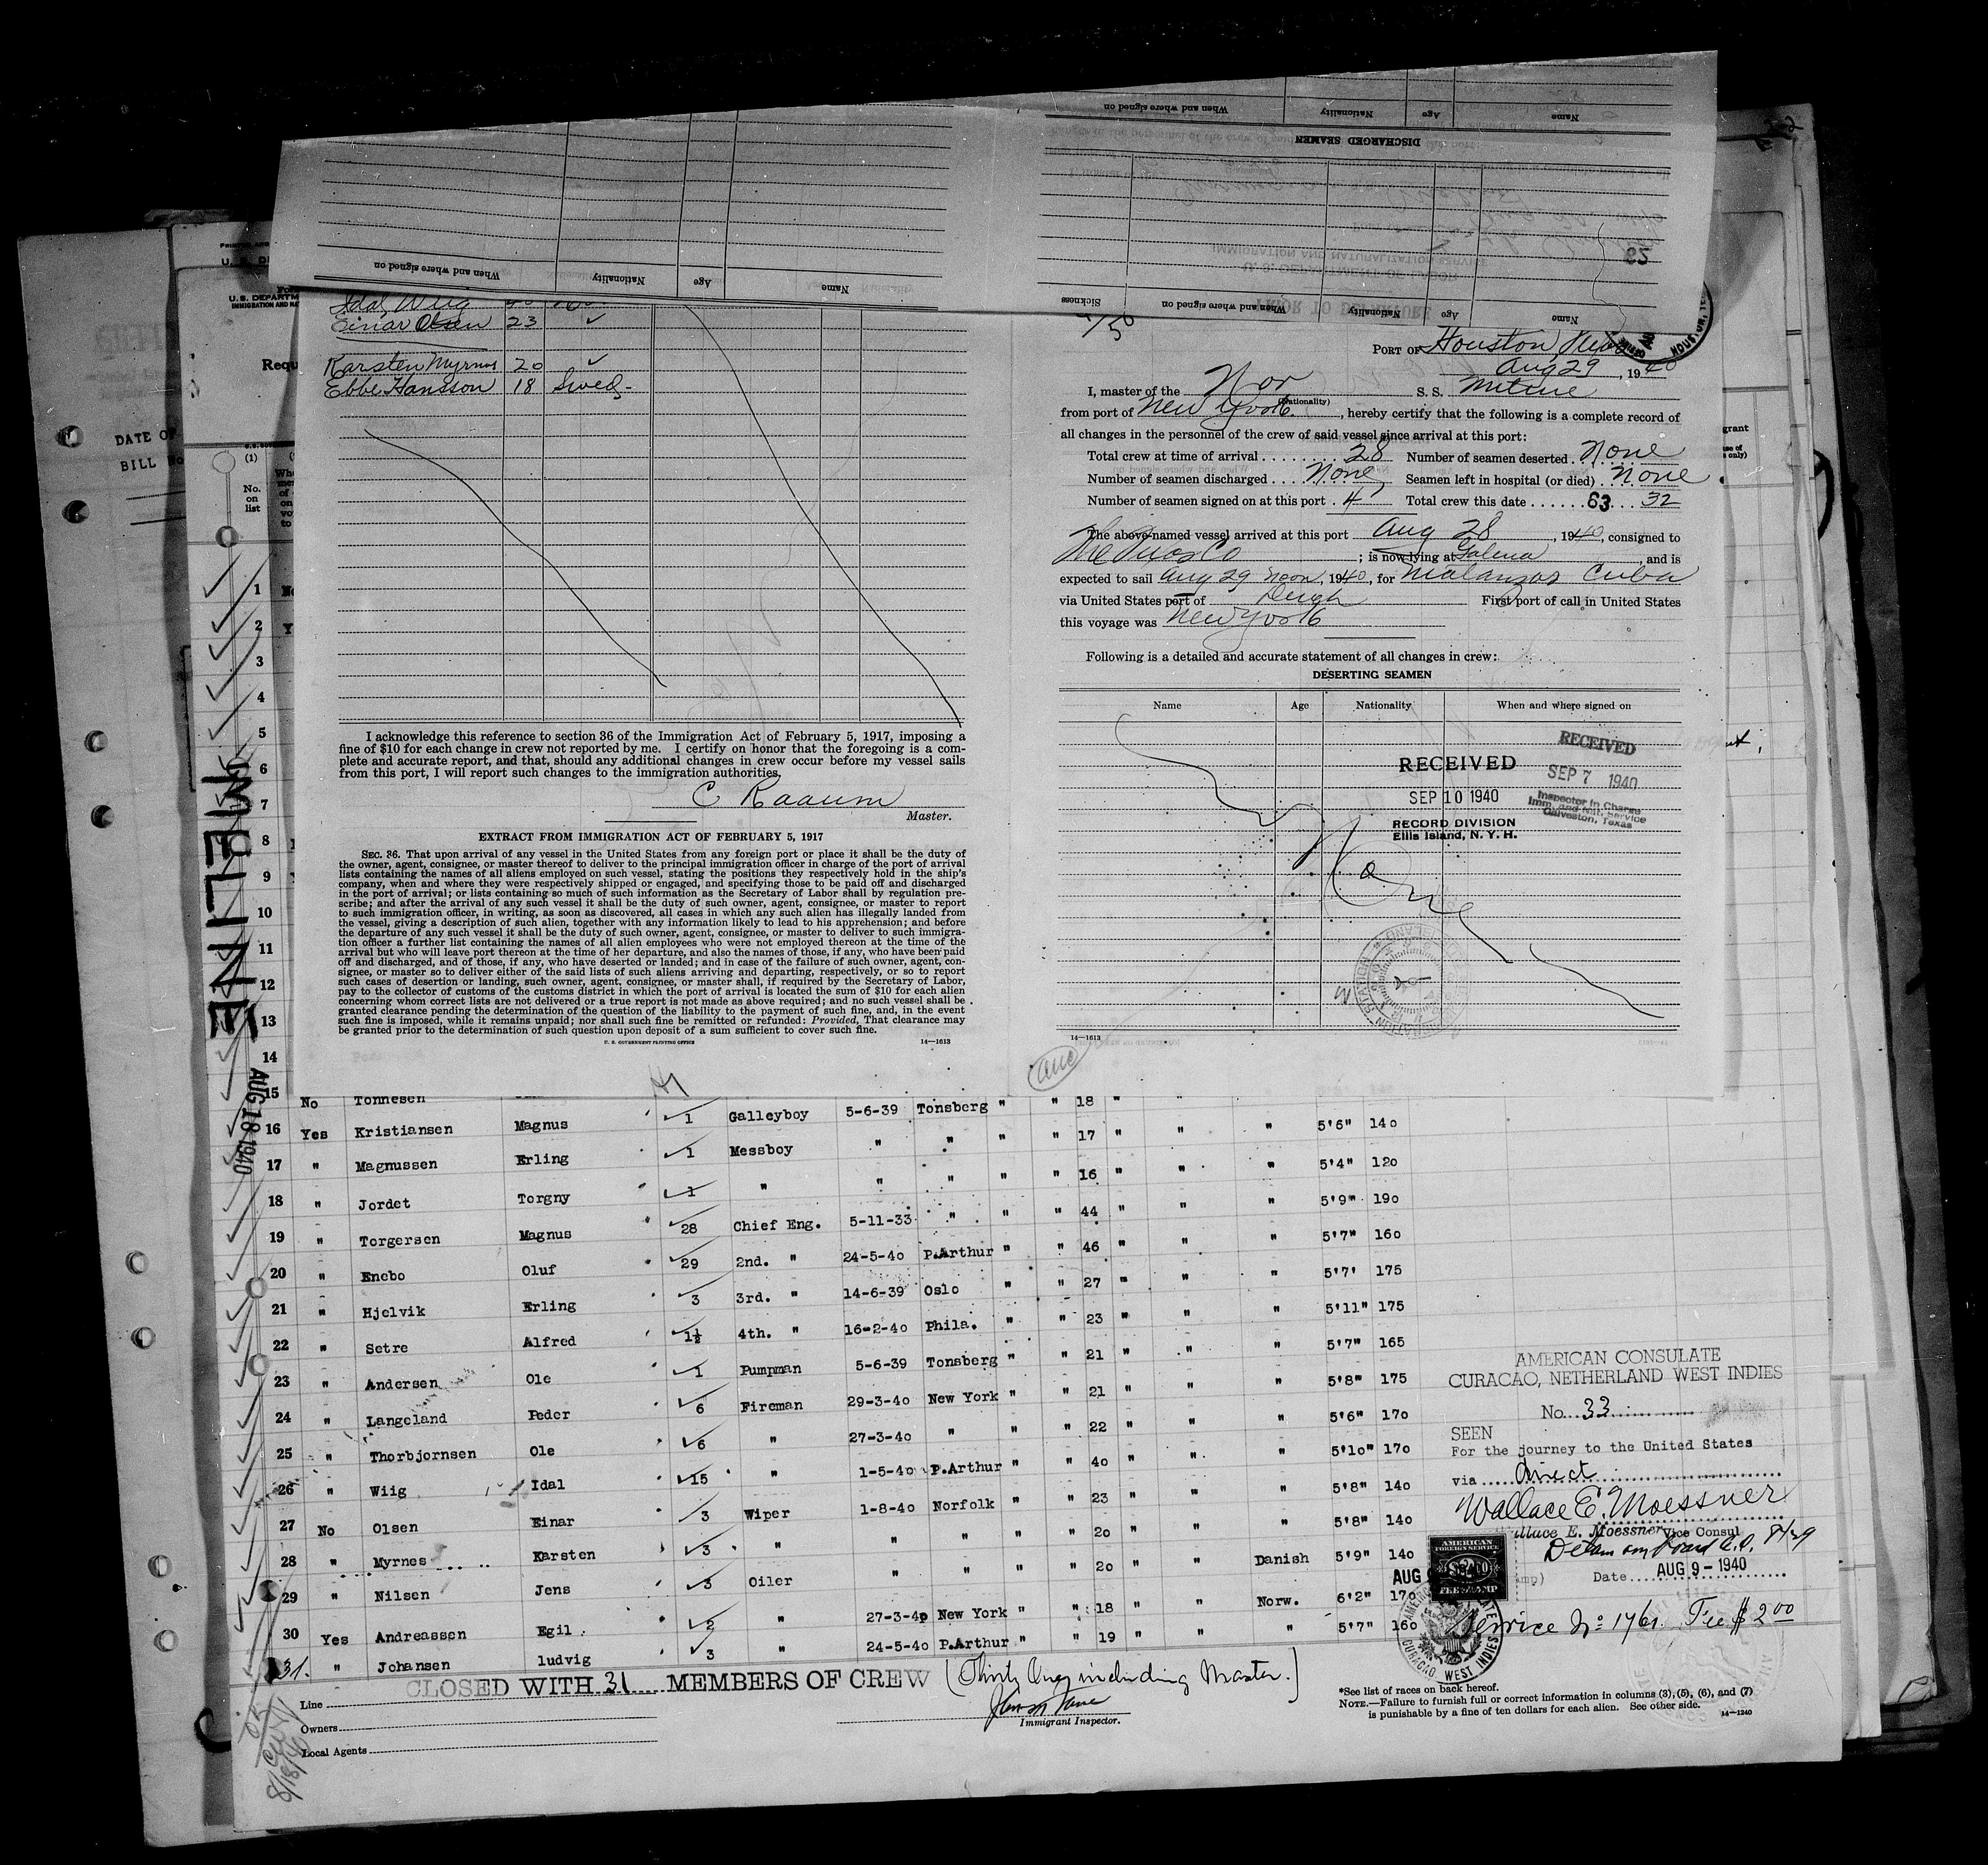 When and where signed on
Nationality
Age
Name
DISCHARGED SEAMEN
When and where signed on
Nationality
Age
Name
Sickness
When and where signed on
Nationality
Age
Name
62
Idal Wiig
Einar Olsen 23 ✓
Karsten Myrnes 20 ✓
Ebbe Hansson 18 Swed-
I acknowledge this reference to section 36 of the Immigration Act of February 5, 1917, imposing a
fine of $10 for each change in crew not reported by me. I certify on honor that the foregoing is a com-
plete and accurate report, and that, should any additional changes in crew occur before my vessel sails
from this port, I will report such changes to the immigration authorities.
C Raaum
Master.
EXTRACT FROM IMMIGRATION ACT OF FEBRUARY 5, 1917
SEC. 36. That upon arrival of any vessel in the United States from any foreign port or place it shall be the duty of
the owner, agent, consignee, or master thereof to deliver to the principal immigration officer in charge of the port of arrival
lists containing the names of all aliens employed on such vessel, stating the positions they respectively hold in the ship's
company, when and where they were respectively shipped or engaged, and specifying those to be paid off and discharged
in the port of arrival; or lists containing so much of such information as the Secretary of Labor shall by regulation pre-
scribe; and after the arrival of any such vessel it shall be the duty of such owner, agent, consignee, or master to report
to such immigration officer, in writing, as soon as discovered, all cases in which any such alien has illegally landed from
the vessel, giving a description of such alien, together with any information likely to lead to his apprehension; and before
the departure of any such vessel it shall be the duty of such owner, agent, consignee, or master to deliver to such immigra-
tion officer a further list containing the names of all alien employees who were not employed thereon at the time of the
arrival but who will leave port thereon at the time of her departure, and also the names of those, if any, who have been paid
off and discharged, and of those, if any, who have deserted or landed; and in case of the failure of such owner, agent, con-
signee, or master so to deliver either of the said lists of such aliens arriving and departing, respectively, or so to report
such cases of desertion or landing, such owner, agent, consignee, or master shall, if required by the Secretary of Labor,
pay to the collector of customs of the customs district in which the port of arrival is located the sum of $10 for each alien
concerning whom correct lists are not delivered or a true report is not made as above required; and no such vessel shall be
granted clearance pending the determination of the question of the liability to the payment of such fine, and, in the event
such fine is imposed, while it remains unpaid; nor shall such fine be remitted or refunded: Provided, That clearance may
be granted prior to the determination of such question upon deposit of a sum sufficient to cover such fine.
U. S. GOVERNMENT PRINTING OFFICE 14—1613
PORT OF Houston
Aug 29, 1940
I, master of the Nor S. S.
(Nationality)
from port of New York, hereby certify that the following is a complete record of
all changes in the personnel of the crew of said vessel since arrival at this port:
Total crew at time of arrival 28 Number of seamen deserted None
Number of seamen discharged None Seamen left in hospital (or died) None
Number of seamen signed on at this port 4 Total crew this date 63 32
The above-named vessel arrived at this port Aug 28, 1940, consigned to
; is now lying at Galena, and is
expected to sail Aug 29 noon, 1940, for Matanzas Cuba
via United States port of First port of call in United States
this voyage was New York
Following is a detailed and accurate statement of all changes in crew:
DESERTING SEAMEN
Name Age Nationality When and where signed on
RECEIVED
SEP 10 1940
RECORD DIVISION
Ellis Island, N. Y. H.
RECEIVED
SEP 7 1940
Inspector in Charge
Imm. and Nat. Service
Galveston, Texas
None
14—1613
DATE OF
BILL No
U. S. DEPARTM
IMMIGRATION AND NA
Requ
(1)
No.
on
list
EMELINE
AUG 18 1940
1
2
3
4
5
6
7
8
9
10
11
12
13
14
15 No Tonnesen 18 " "
16 Yes Kristiansen Magnus 1 Galleyboy 5-6-39 Tonsberg " " 17 " " " 5'6" 140
17 " Magnussen Erling 1 Messboy " " " " 16 " " " 5'4" 120
18 " Jordet Torgny 1 " " " " " 44 " " " 5'9" 190
19 " Torgersen Magnus 28 Chief Eng. 5-11-33 " " " 46 " " " 5'7" 160
20 " Enebo Oluf 29 2nd. " 24-5-40 P.Arthur " " 27 " " " 5'7' 175
21 " Hjelvik Erling 3 3rd. " 14-6-39 Oslo " " 23 " " " 5'11" 175
22 " Setre Alfred 1½ 4th. " 16-2-40 Phila. " " 21 " " " 5'7" 165
23 " Andersen Ole 1 Pumpman 5-6-39 Tonsberg " " 21 " " " 5'8" 175
24 " Langeland Peder 6 Fireman 29-3-40 New York " " 22 " " " 5'6" 170
25 " Thorbjornsen Ole 6 " 27-3-40 " " " 40 " " " 5'10" 170
26 " Wiig Idal 15 " 1-5-40 P.Arthur " " 23 " " " 5'8" 140
27 No Olsen Einar 3 Wiper 1-8-40 Norfolk " " 20 " " " 5'8" 140
28 " Myrnes Karsten 3 " " " " " 20 " " Danish 5'9" 140
29 " Nilsen Jens 3 Oiler " " " " 18 " " Norw. 6'2" 170
30 Yes Andreassen Egil 2 " 27-3-40 New York " " 19 " " " 5'7" 160
31. " Johansen ludvig 3 " 24-5-40 P.Arthur "
CLOSED WITH 31 MEMBERS OF CREW (Thirty One, including Master.)
Immigrant Inspector.
Line
Owners
Local Agents
AMERICAN CONSULATE
CURACAO, NETHERLAND WEST INDIES
No. 33
SEEN
For the journey to the United States
via direct
Wallace E. Moessner
Wallace E. Moessner Vice Consul
Detain on board 8/29
Date AUG 9 - 1940
AMERICAN
FOREIGN SERVICE
FEE STAMP
CURACAO WEST INDIES
Service No 1761. Fee $2.00
*See list of races on back hereof.
NOTE.—Failure to furnish full or correct information in columns (3), (5), (6), and (7)
is punishable by a fine of ten dollars for each alien. See other side.
14—1240